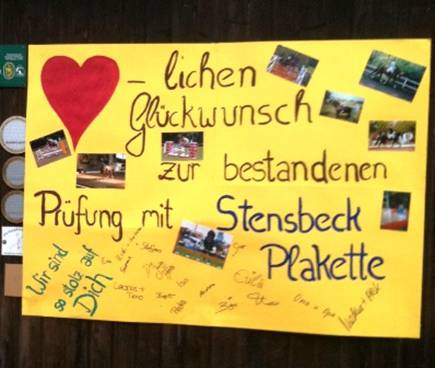 - lichen
Glückwunsch
zur bestandenen
Prüfung mit Stensbeck
Plakette
Wir sind
so stolz auf
Dich